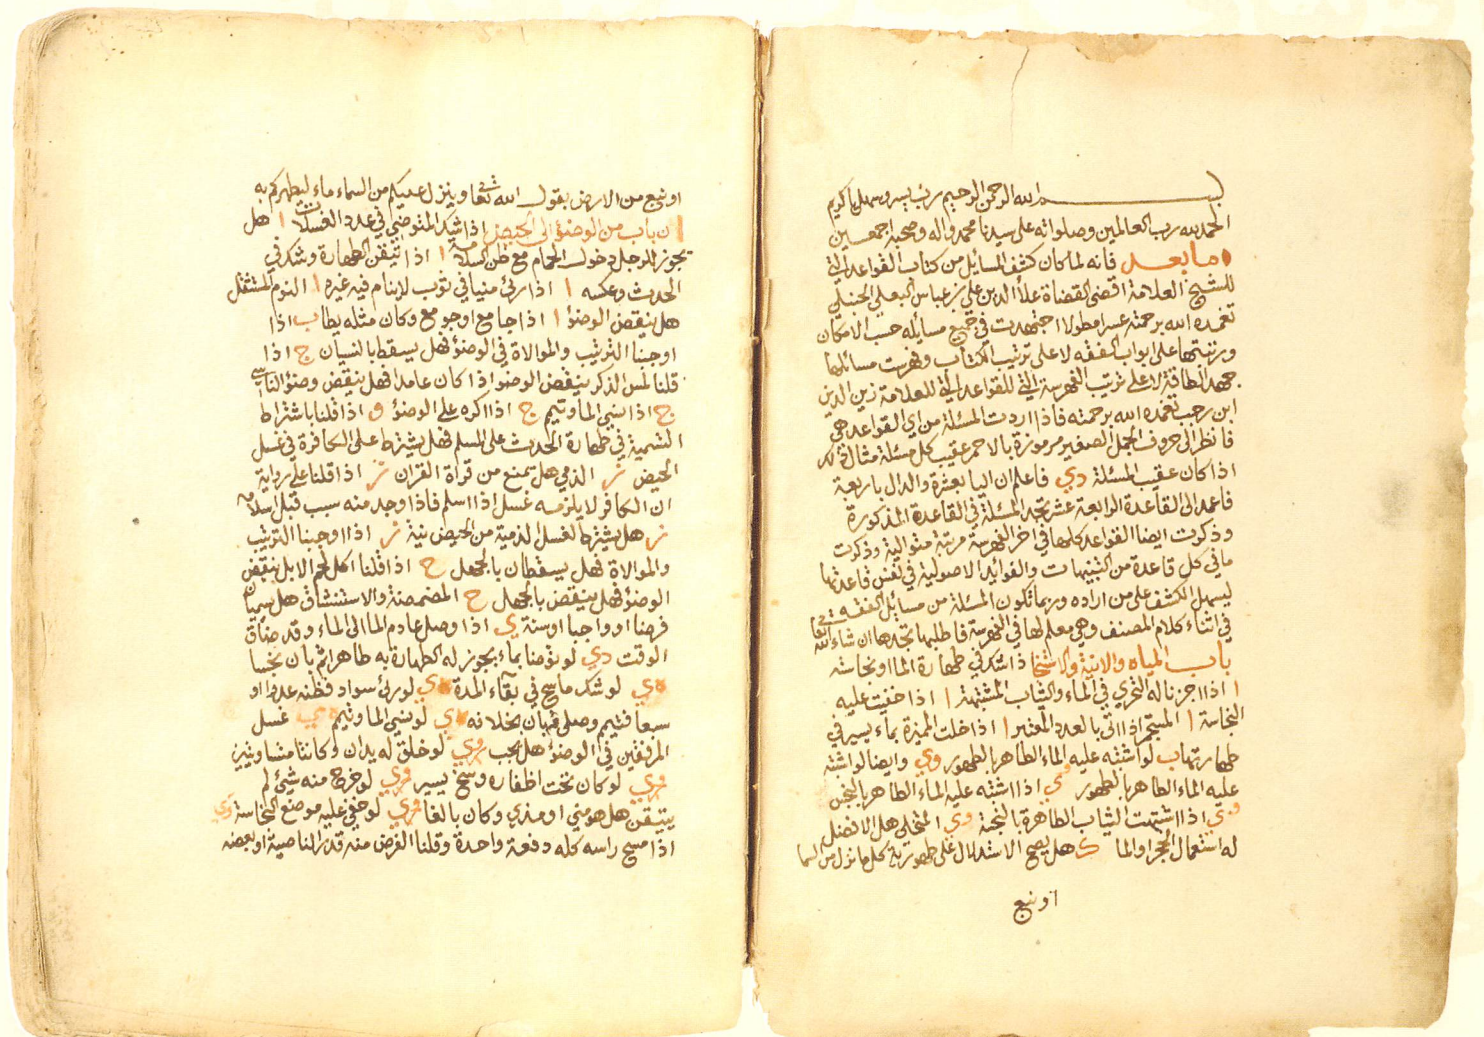 بسم الله الرحمن الرحيم رب يسر وسهل يا كريم
الحمد لله رب العالمين وصلواته على سيدنا محمد واله وصحبه اجمعين
اما بعد فانه لما كان كشف المسايل من كتاب القواعد التي
للشيخ العلامة اقضى القضاة علا الدين علي بن عباس البعلي الحنبلي
تغمده الله برحمته عسرا مطولا اجتهدت في جميع مسايله حسب الامكان
ورتبتها على ابواب الفقه لا على ترتيب الكتاب وفهرست مسائلها
جهد الطاقة لا على ترتيب الفهرسة التي للقواعد التي للعلامة زين الدين
ابن رجب تغمده الله برحمته فاذا اردت المسئلة من اي القواعد هي
فانظر الى حروف الجمل الصغير مرموزة بالاحمر عقيب كل مسئلة مثال ذلك
اذا كان عقيب المسئلة دي فاعلم ان اليا بعشرة والدال باربعة
فاعمد الى القاعدة الرابعة عشر تجد المسئلة في القاعدة المذكورة
وذكرت ايضا القواعد كلها في اخر الفهرسة مرتبة متوالية وذكرت
ما في كل قاعدة من التنبيهات والفوايد الاصولية في نفس قاعدتها
ليسهل الكشف على من اراده وربما تكون المسئلة من مسايل الفقه
في اثناء كلام المصنف وهي معلم لها في الفهرسة فاطلبها تجدها ان شاء الله تعالى
باب المياه والانية والاستنجا اذا شك في طهارة الماء او نجاسته
ا اذا اجزنا له التحري في الماء والثياب المشتبهة ا اذا خفيت عليه
النجاسة ا المستجمر اذا اتى بالعدد المعتبر ا اذا خلت الهرة بماء يسير في
طهارتها ب لو اشتبه عليه الماء الطاهر بالطهور وي وايضا لو اشتبه
عليه الماء الطاهر بالطهور وي اذا اشتبه عليه الماء الطاهر بالنجس
وي اذا اشتبهت الثياب الطاهرة بالنجسة وي المتخلي هل الافضل
له استعمال الحجر او الما ك هل يصح الاستدلال على طهورية كل ما نزل من السما
او نبع
او نبع من الارض بقول الله تعالى وينزل عليكم من السماء ماء ليطهركم به
ن باب من الوضؤ الى الحيض اذا شك المتوضي في عدد الغسلات ا هل
يجوز للرجل دخول الحمام مع ظن السلامة ا اذا تيقن الطهارة وشك في
الحدث وعكسه ا اذا رئى منيا في ثوب لا ينام فيه غيره ا النوم المستثقل
هل ينقض الوضؤ ا اذا جامع او جومع وكان مثله يطا ب اذا
اوجبنا الترتيب والموالاة في الوضؤ فهل يسقط بالنسيان ج اذا
قلنا لمس الذكر ينقض الوضؤ اذا كان عامدا فهل ينقض وضؤ الناسي
ج اذا نسي الما وتيمم ج اذا اكره على الوضؤ و اذا قلنا باشتراط
التسمية في طهارة الحدث على المسلم فهل يشترط على الكافرة في غسل
الحيض ز الذمي هل يمنع من قراة القران ز اذا قلنا على رواية
ان الكافر لا يلزمه غسل اذا اسلم فاذا وجد منه سبب قبل اسلامه
ز هل يشترط لغسل الذمية من الحيض نية ز اذا اوجبنا الترتيب
والموالاة فهل يسقطان بالجهل ح اذا قلنا اكل لحم الابل ينقض
الوضؤ فهل ينقض بالجهل ح المضمضة والاستنشاق هل يسميان
فرضا او واجبا او سنة ي اذا وصل عادم الما الى الماء وقد ضاق
الوقت دي لو توضا بماء يجوز له الطهارة به ظاهرا ثم بان نجسا
هي لو شك ماسح في بقاء المدة هي لو رئى سواد فظنه عدوا او
سبعا فتيمم وصلى فبان بخلافه هي لو نسي الما وتيمم هي غسل
المرفقين في الوضؤ هل يجب وي لو خلق له يدان وكانتا متساويتين
وي لو كان تحت اظفاره وسخ يسير وي لو خرج منه شئ لم
يتيقن هل هو مني او مذي وكان بالغا وي لو خفي عليه موضع النجاسة دي
اذا مسح راسه كله دفعة واحدة وقلنا الفرض منه قدر الناصية او بعضه